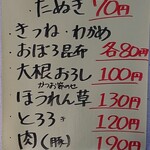 たぬき 70円
・きつね・わかめ
・おぼろ昆布 各80円
・大根おろし 100円
かつお客のせ
・ほうれん草 130円
・とろろ 120円
・肉(豚) 190円